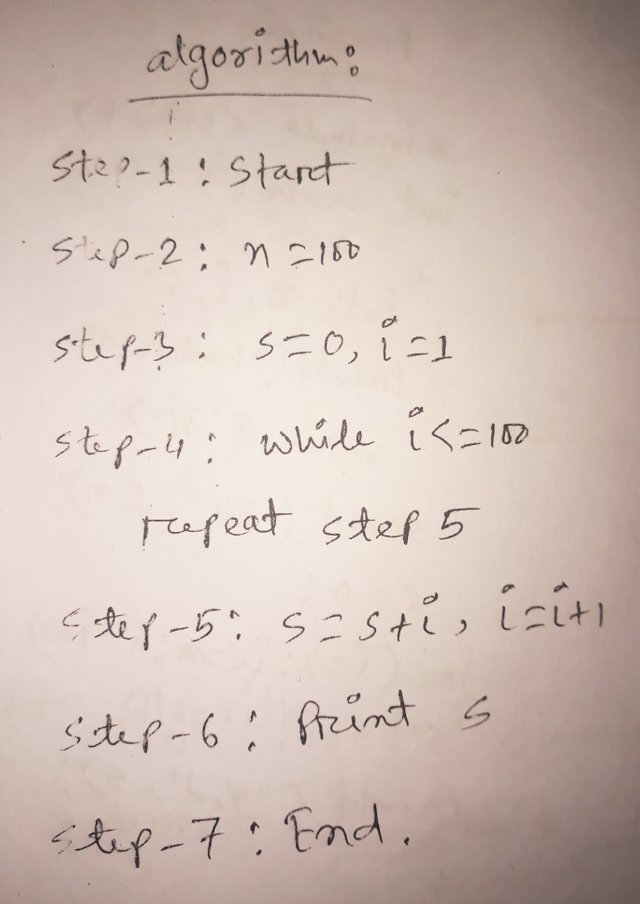 algorithm:
Step-1: Start
Step-2: n=100
step-3: s=0, i=1
step-4: while i<=100
repeat step 5
step-5: s=s+i, i=i+1
step-6: Print s
step-7: End.